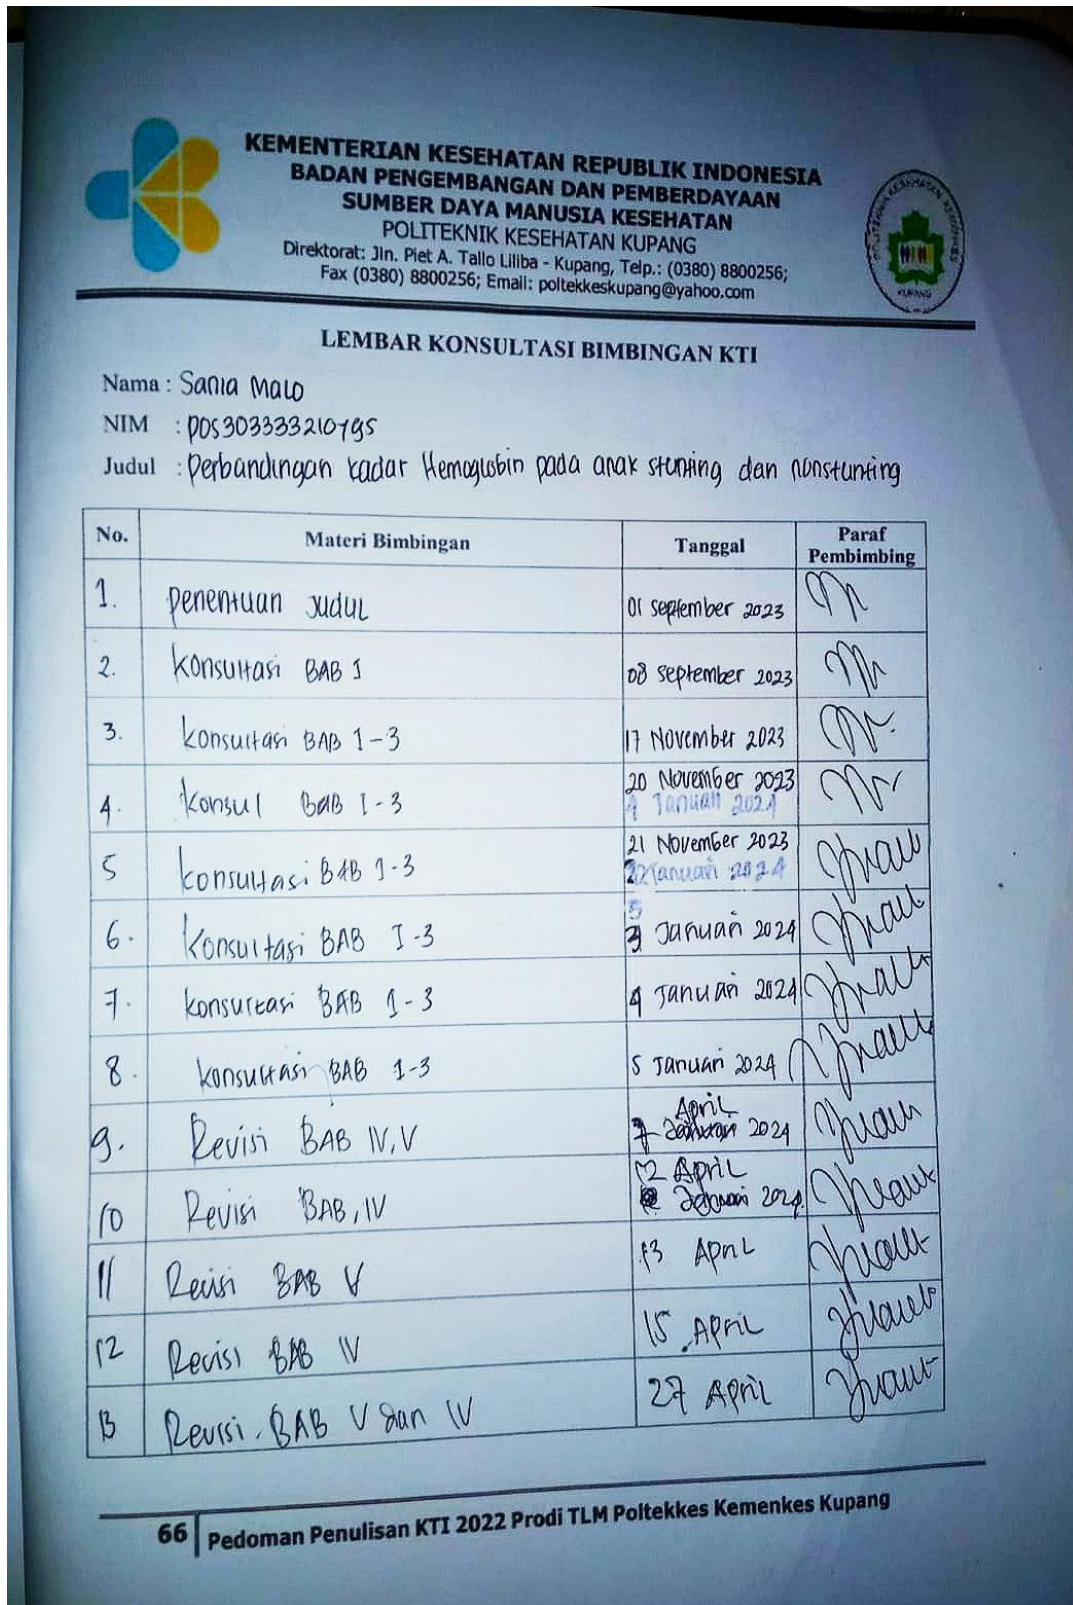 KEMENTERIAN KESEHATAN REPUBLIK INDONESIA
BADAN PENGEMBANGAN DAN PEMBERDAYAAN
SUMBER DAYA MANUSIA KESEHATAN
POLITEKNIK KESEHATAN KUPANG
Direktorat: Jln. Piet A. Tallo Liliba - Kupang, Telp.: (0380) 8800256;
Fax (0380) 8800256; Email: poltekkeskupang@yahoo.com
LEMBAR KONSULTASI BIMBINGAN KTI
Nama : Sania Malo
NIM :
Judul : Perbandingan kadar Hemoglobin pada anak stunting dan nonstunting
No. Materi Bimbingan Tanggal Paraf Pembimbing
1. penentuan Judul 01 september 2023
2. Konsultasi BAB I 08 september 2023
3. konsultasi BAB 1-3 17 November 2023
4. konsul BaB I-3 20 November 2023
4 Januari 2024
5 konsultasi BAB 1-3 21 November 2023
Januari 2024
6. Konsultasi BAB I-3 3 Januari 2024
7. konsultasi BAB 1-3 4 Januari 2024
8. konsultasi BAB 1-3 5 Januari 2024
9. Revisi BAB IV, V 7 April 2024
10 Revisi BAB, IV 12 April 2024
11 Revisi BAB V 13 April
12 Revisi BAB IV 15 April
13 Revisi BAB V dan IV 27 April
66 Pedoman Penulisan KTI 2022 Prodi TLM Poltekkes Kemenkes Kupang